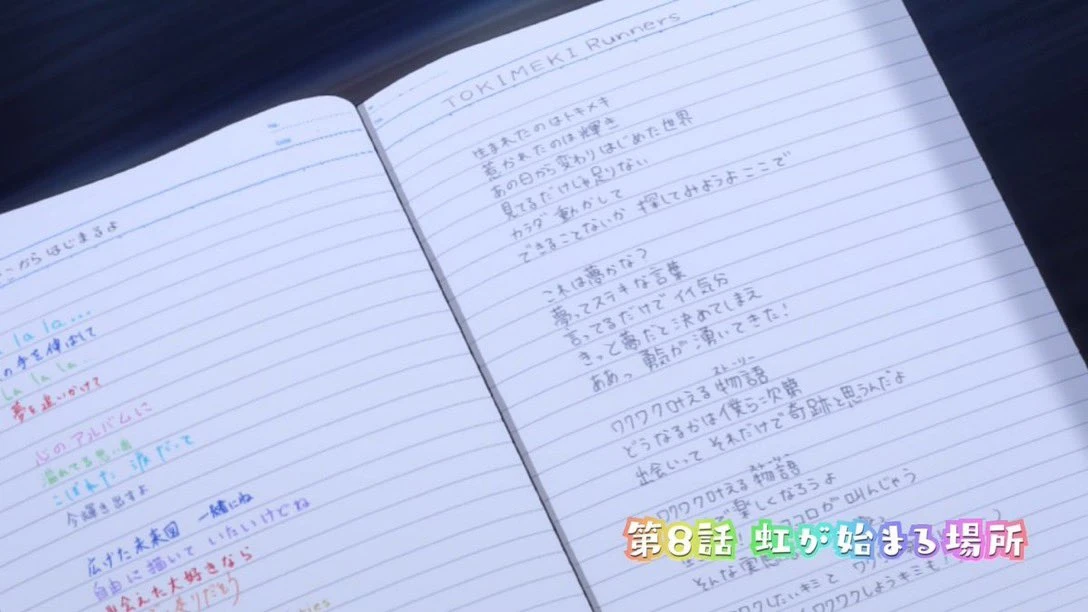 こからはじまるよ
la la...
の手を伸ばして
La La La
夢を追いかけて
心のアルバムに
溢れてる思い出
こぼれた 涙だって
今輝き出すよ
広げた未来図 一緒にね
自由に描いて いたいけどね
会えた大好きなら
TOKIMEKI Runners
生まれたのはトキメキ
惹かれたのは輝き
あの日から変わりはじめた世界
見てるだけじゃ足りない
カラダ 動かして
できることないか 探してみようよここで
これは夢かな?
夢ってステキな言葉
言ってるだけで イイ気分
きっと夢だと決めてしまえ
ああっ 勇気が 湧いてきた!
ストーリー
ワクワク叶える 物語
どうなるかは僕ら次第
出会いって それだけで奇跡と思うんだよ
ストーリー
ワクワク叶える 物語
で楽しくなろうよ
ココロが 叫んじゃう
そんな実感
したいキミと
ワクワクしようキミも
第8話 虹が始まる場所